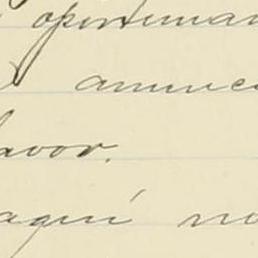 oportunam
anunc
avor.
aquí no